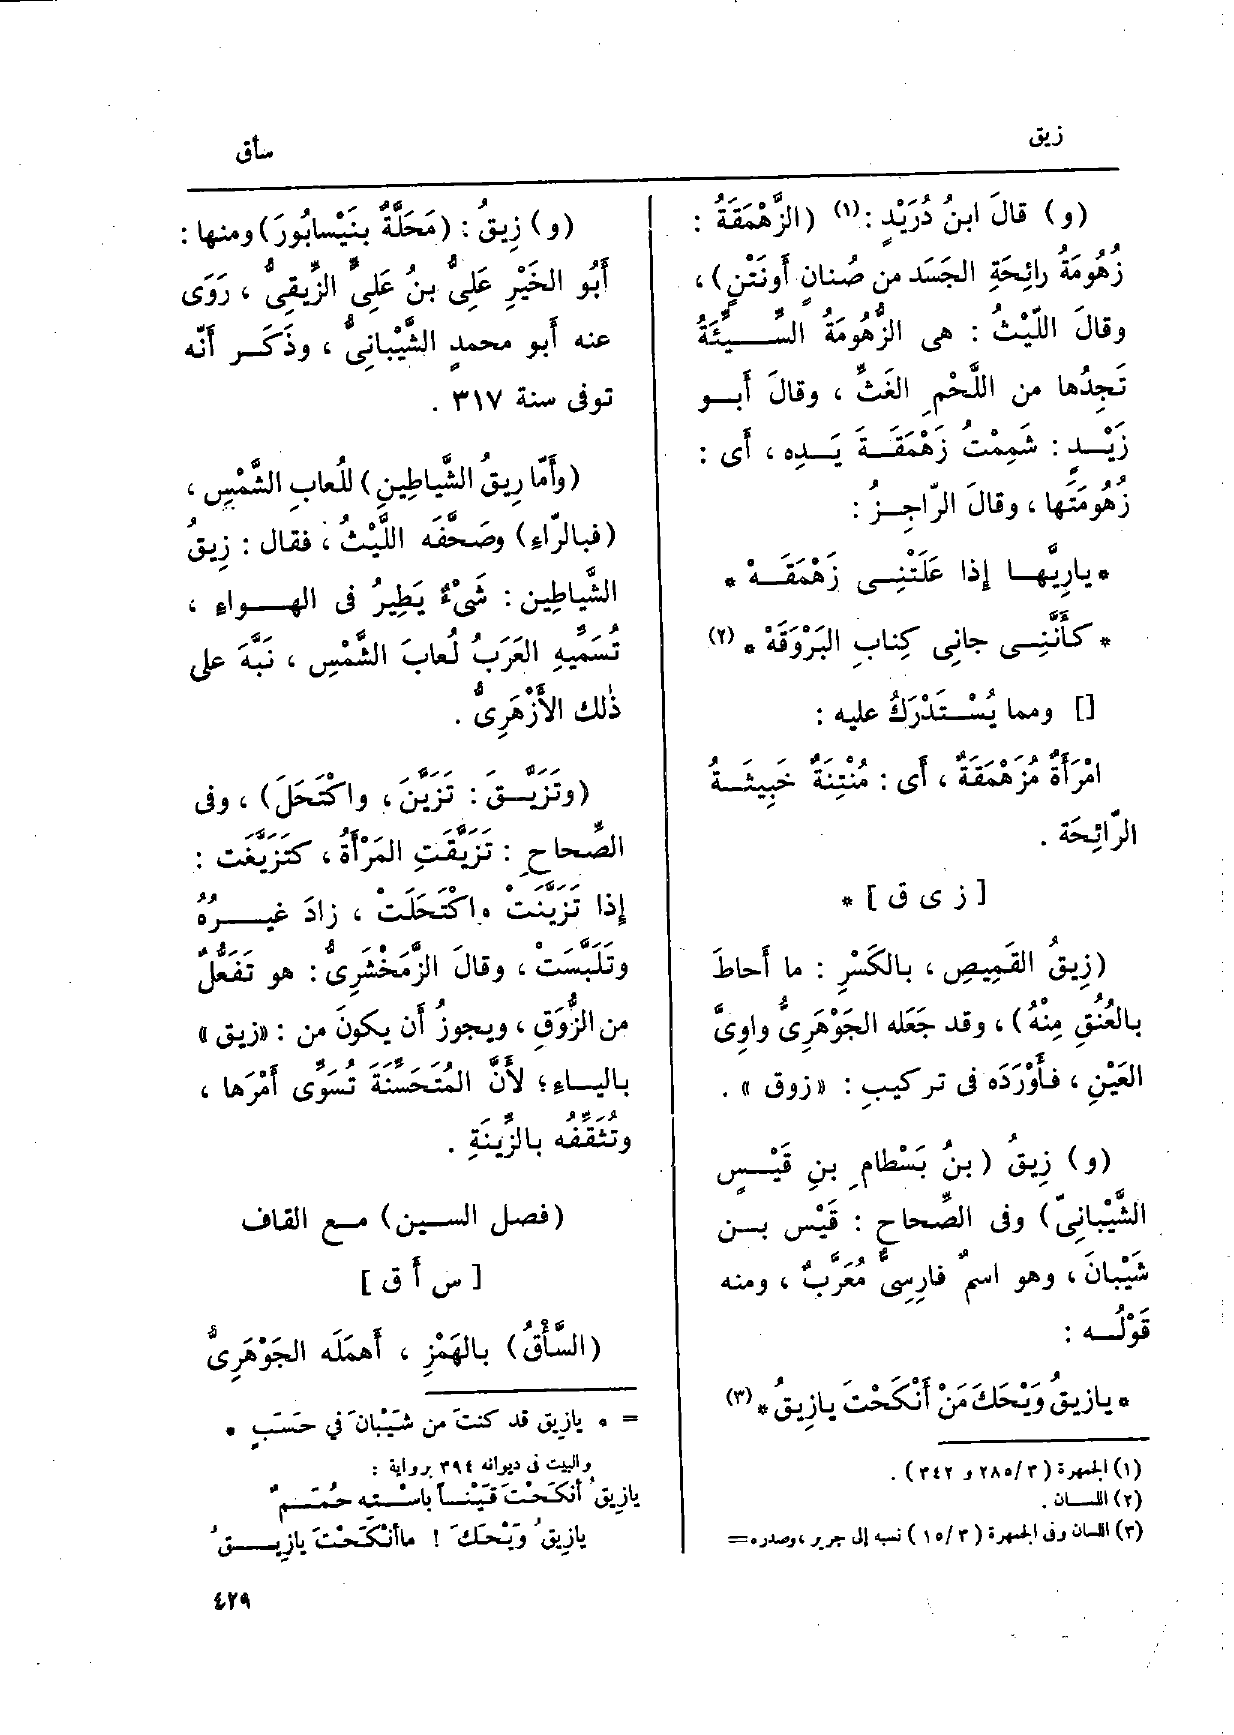 زيق
سأق
(و) قالَ ابنُ دُرَيْدٍ :(١) (الزَّهْمَقَةُ :
زُهُومَةُ رائِحَةِ الجَسَد من صُنانٍ أَونَتْنٍ) ،
وقالَ اللَّيْثُ : هى الزُّهُومَةُ السَّـيِّئَةُ
تَجِدُها من اللَّحْمِ الغَثِّ ، وقالَ أَبـو
زَيْـدٍ : شَمِمْتُ زَهْمَقَـةَ يَـدِه ، أَى :
زُهُومَتَها ، وقالَ الرّاجِـزُ :
* يارِيَّهـا إذا عَلَتْنِـى زَهْمَقَـهْ *
* كأَنَّنِـى جانِى كِتابِ البَرْوَقَهْ * (٢)
[] ومما يُسْـتَدْرَكُ عليه :
امْرَأَةٌ مُزَهْمَقَةٌ ، أَى : مُنْتِنَةٌ خَبِيثَـةُ
الرّائِحَة .
[ ز ى ق ] *
(زِيقُ القَمِيصِ ، بالكَسْرِ : ما أَحاطَ
بالعُنُقِ مِنْهُ) ، وقد جَعَله الجَوْهَرِىُّ واوِىَّ
العَيْنِ ، فـأَوْرَدَه فى تركيبِ : «زوق» .
(و) زِيقُ (بنُ بَسْطامِ بنِ قَيْـسٍ
الشَّيْبانِىّ) وفى الصِّحاحِ : قَيْس بـن
شَيْبانَ ، وهو اسمٌ فارِسِىٌّ مُعَرَّبٌ ، ومنه
قَوْلُـه :
* يازيقُ وَيْحَكَ مَنْ أَنْكَحْتَ يازِيقُ * (٣)
(١) الجمهرة (٢٨٥/٣ و ٣٤٢) .
(٢) اللسان .
(٣) اللسان وفى الجمهرة (١٥/٣) نسبه إلى جرير ، وصدره =
(و) زِيقُ : (مَحَلَّةٌ بنَيْسابُورَ) ومنها :
أَبُو الخَيْرِ عَلِىُّ بنُ عَلِىٍّ الزِّيقِىُّ ، رَوَى
عنه أَبو محمدٍ الشَّيْبانِىُّ ، وذَكَـر أَنَّه
توفى سنة ٣١٧ .
(وأَمّا رِيقُ الشَّياطِينِ) للُعابِ الشَّمْسِ ،
(فبالرّاءِ) وصَحَّفَه اللَّيْثُ ، فقال : زِيقُ
الشَّياطِين : شَىْءٌ يَطِيرُ فى الهـواءِ ،
تُسَمِّيهِ العَرَبُ لُعابَ الشَّمْسِ ، نَبَّهَ على
ذٰلك الأَزْهَرِىُّ .
(وتَزَيَّـقَ : تَزَيَّنَ ، واكْتَحَلَ) ، وفى
الصِّحاحِ : تَزَيَّقَتِ المَرْأَةُ ، كتَزَيَّغَت :
إذا تَزَيَّنَتْ واكْتَحَلَتْ ، زادَ غيـرُهُ
وتَلَبَّسَتْ ، وقالَ الزَّمَخْشَرِىُّ : هو تَفَعُّلٌ
من الزُّوَقِ ، ويجوزُ أَن يكونَ من : «زيق»
باليـاءِ ؛ لأَنَّ المُتَحَسِّنَةَ تُسَوِّى أَمْرَها ،
وتُثَقِّفُه بالزِّينَةِ .
(فصل السـين) مـع القاف
[ س أ ق ]
(السَّأْقُ) بالهَمْزِ ، أَهمَلَه الجَوْهَرِىُّ
= * يازِيق قد كنتَ من شَيْبانَ في حَسَبٍ *
والبيت فى ديوانه ٣٩٤ برواية :
يازِيقُ أنكَحْتَ قَيْنـاً باسْـتِه حُمَـمٌ
يازِيقُ وَيْحَكَ ! ماأنْكَحْتَ يازِيـقُ
٤٢٩